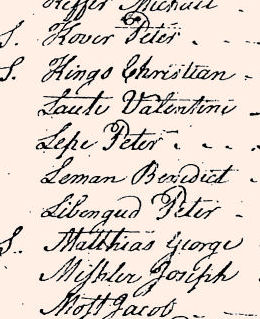 Keffer Michael
S. Kover Peter
S. Kings Christian
Lauti Valentine
Lepe Peter
Leman Benedict
Libengud Peter
S. Matthias George
Mishler Joseph
Most Jacob